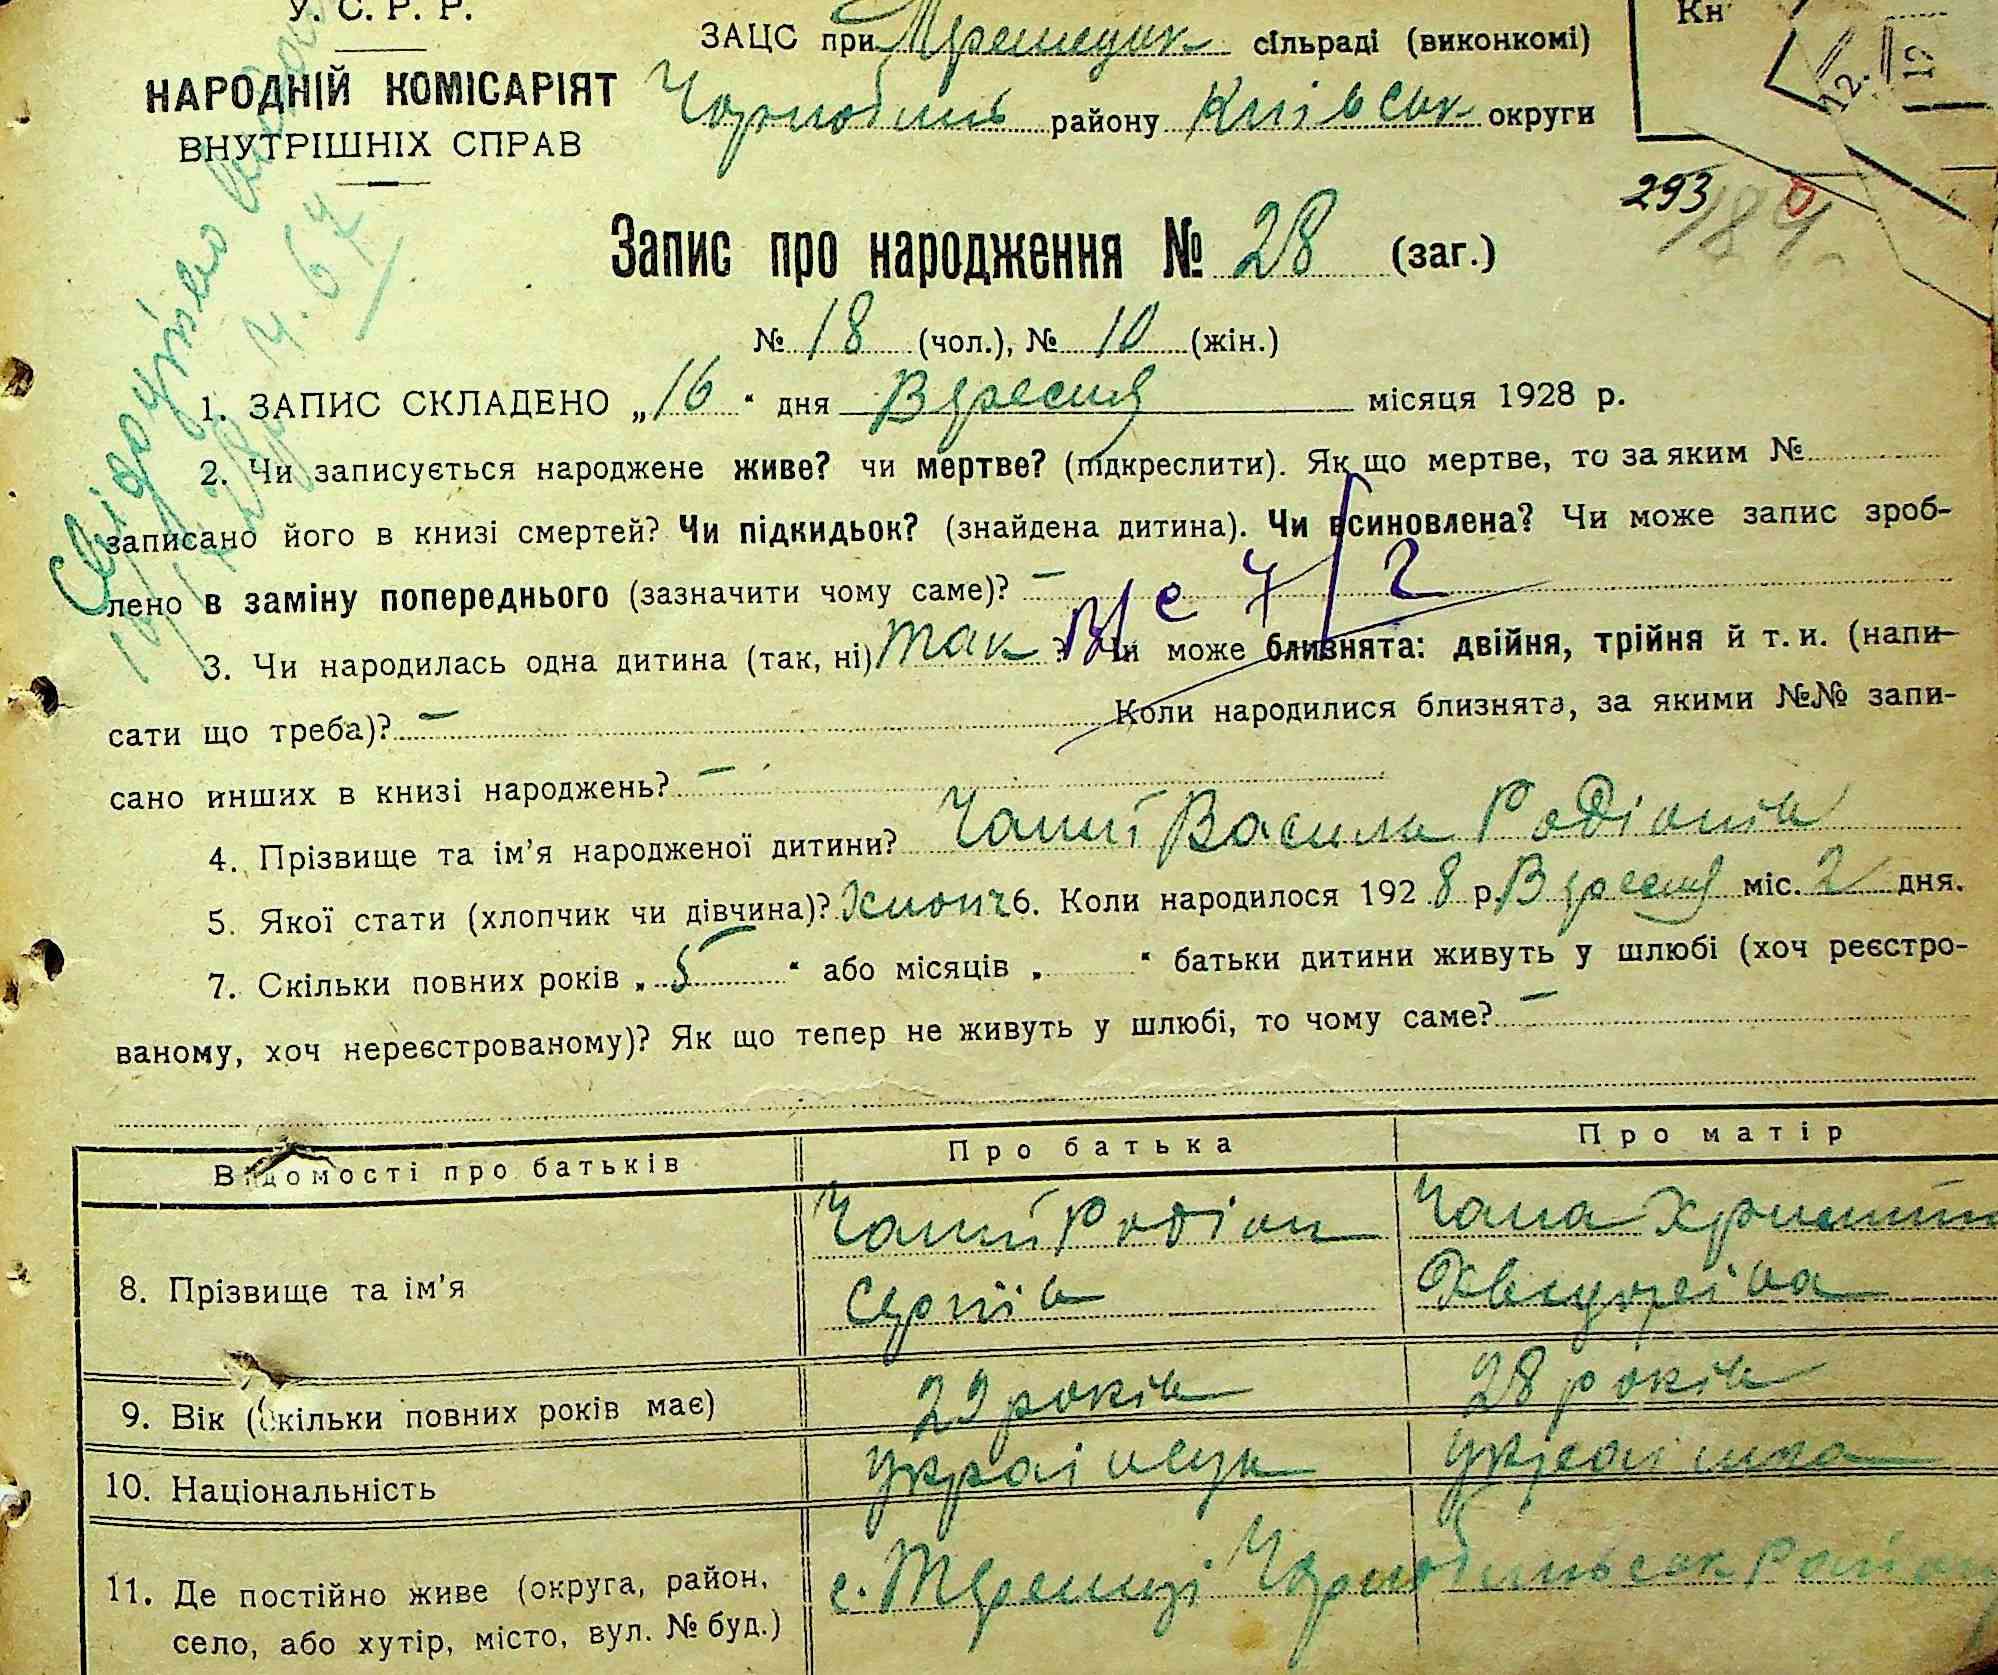 У. С. Р. Р.
НАРОДНІЙ КОМІСАРІЯТ
ВНУТРІШНІХ СПРАВ
ЗАЦС при сільраді (виконкомі)
Чорнобиль району Київськ округи
Кн
12.
293
Запис про народження № 28 (заг.)
№ 18 (чол.), № 10 (жін.)
1. ЗАПИС СКЛАДЕНО „16“ дня Вересня місяця 1928 р.
2. Чи записується народжене живе? чи мертве? (підкреслити). Як що мертве, то за яким №
записано його в книзі смертей? Чи підкидьок? (знайдена дитина). Чи всиновлена? Чи може запис зроб-
лено в заміну попереднього (зазначити чому саме)? —
3. Чи народилась одна дитина (так, ні) так ? Чи може близнята: двійня, трійня й т. и. (напи-
сати що треба)? — Коли народилися близнята, за якими №№ запи-
сано инших в книзі народжень? —
4. Прізвище та ім’я народженої дитини? Чапій Василь Родіонів
5. Якої стати (хлопчик чи дівчина)? Хлопч 6. Коли народилося 1928 р. Вересня міс. 2 дня.
7. Скільки повних років „5“ або місяців „ “ батьки дитини живуть у шлюбі (хоч реєстро-
ваному, хоч нереєстрованому)? Як що тепер не живуть у шлюбі, то чому саме? —
Відомості про батьків Про батька Про матір
8. Прізвище та ім’я Чапій Родіон
Сергіїв
9. Вік (скільки повних років має) 29 років 28 років
10. Національність українець українка
11. Де постійно живе (округа, район,
село, або хутір, місто, вул. № буд.) с. Чорнобильськ району